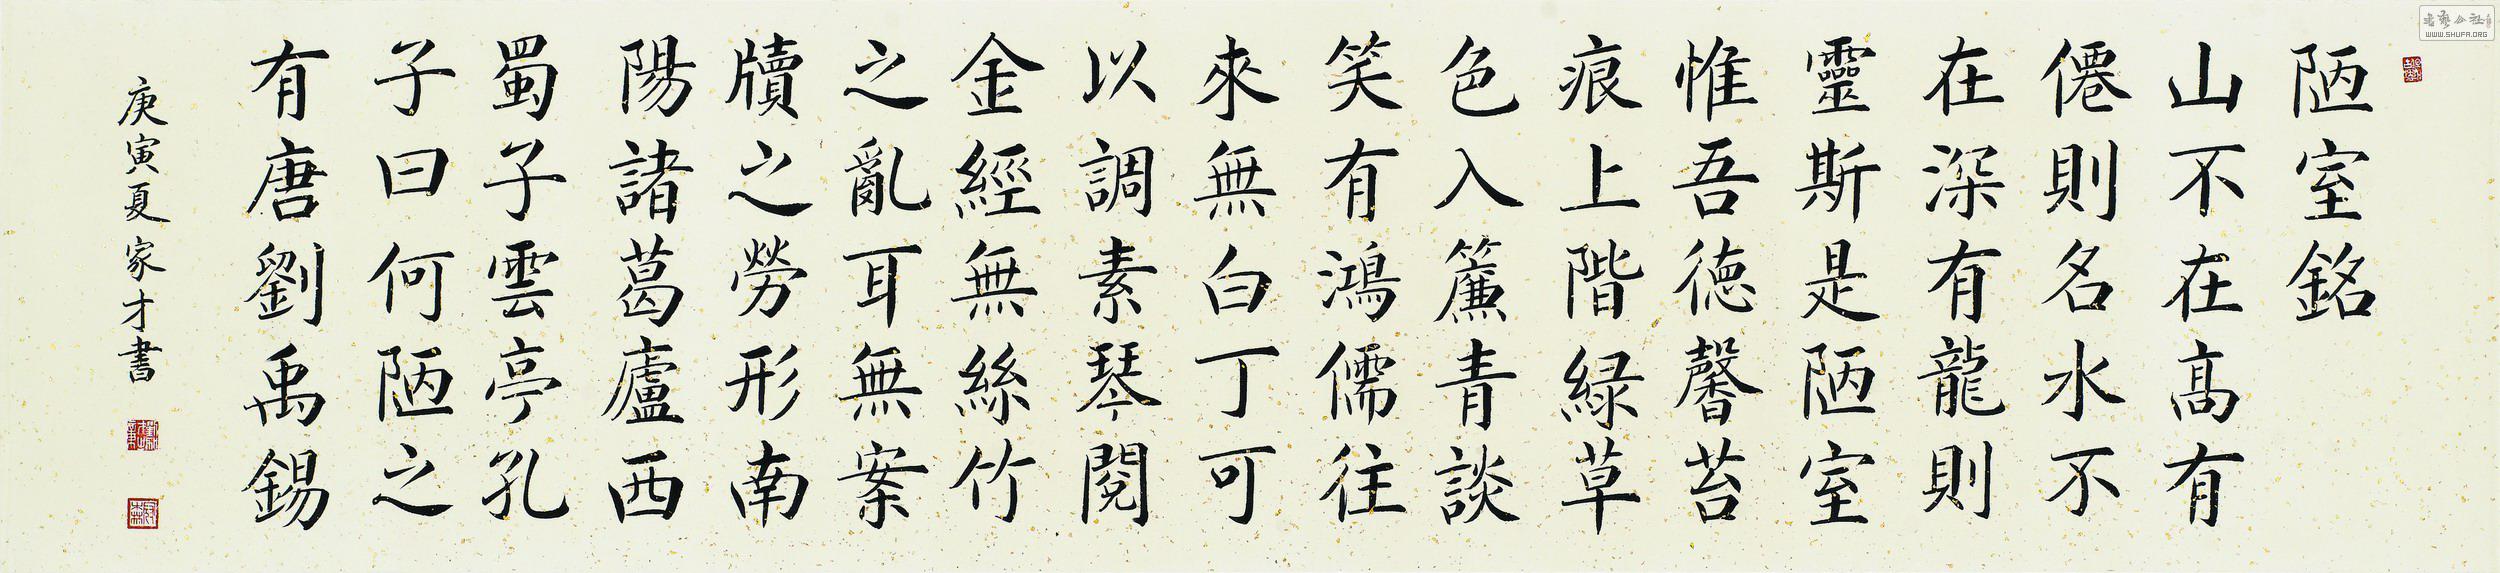 陋室銘
山不在髙有
僊則名水不
在深有龍則
靈斯是陋室
惟吾徳馨苔
痕上階緑草
色入簾青談
笑有鴻儒往
來無白丁可
以調素琴閱
金經無絲竹
之亂耳無案
牘之勞形南
陽諸葛廬西
蜀子雲亭孔
子曰何陋之
有唐劉禹錫
庚寅夏家才書
WWW.SHUFA.ORG